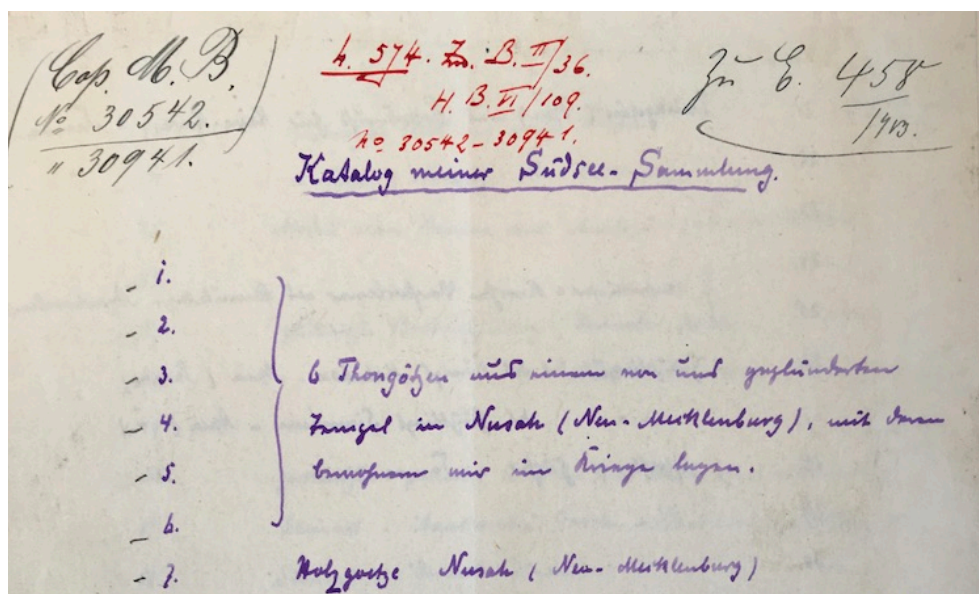 (Cap. M. B.
No 30542.
" 30941.
h. 574. Zu. B. III/36.
H. B. VI/109.
No 30542-30941.
zu E. 458
/1913.
Katalog meiner Südsee-Sammlung.
1.
2.
3. 6 Thongötzen aus einem von uns geplünderten
4. Tempel in Nusah (Neu-Mecklenburg), mit deren
5. bewohnern wir im Kriege lagen.
6.
7. Holzgoetze Nusah (Neu-Mecklenburg)